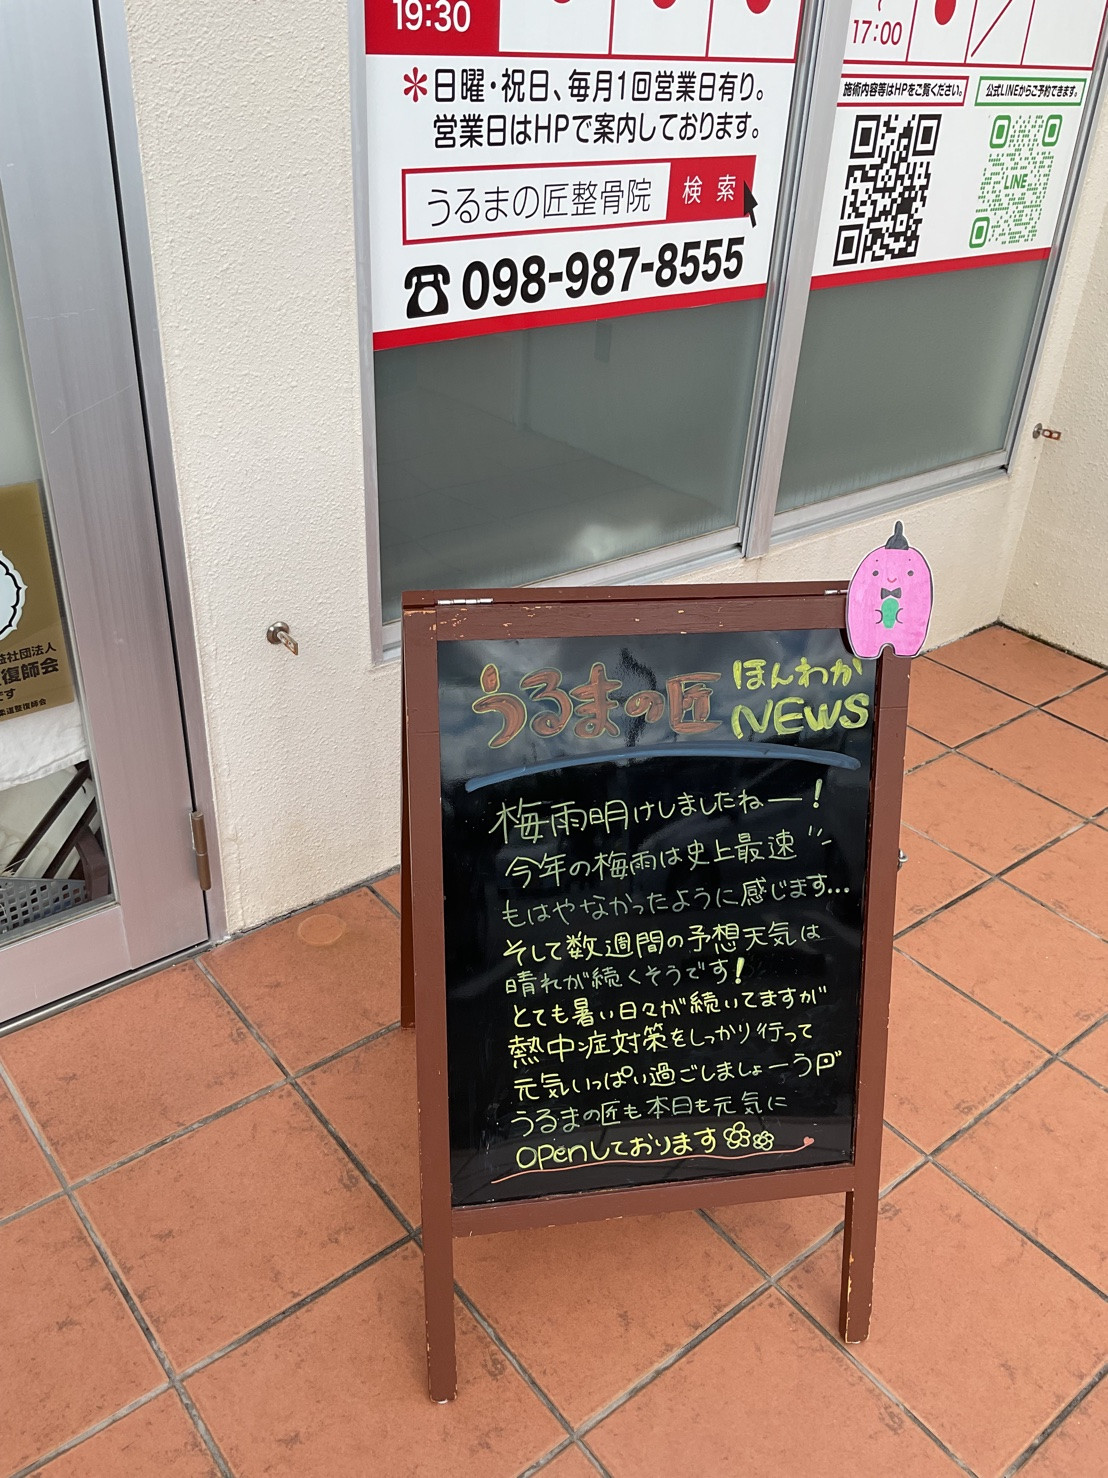 19:30
17:00
*日曜・祝日、毎月1回営業日有り。
営業日はHPで案内しております。
うるまの匠整骨院 検索
098-987-8555
施術内容等はHPをご覧ください。
公式LINEからご予約できます。
LINE
益社団法人
復師会
です
柔道整復師会
うるまの匠 ほんわか
NEWS
梅雨明けしましたねー!
今年の梅雨は史上最速
もはやなかったように感じます...
そして数週間の予想天気は
晴れが続くそうです!
とても暑い日々が続いてますが
熱中症対策をしっかり行って
元気いっぱい過ごしましょーう
うるまの匠も本日も元気に
openしております